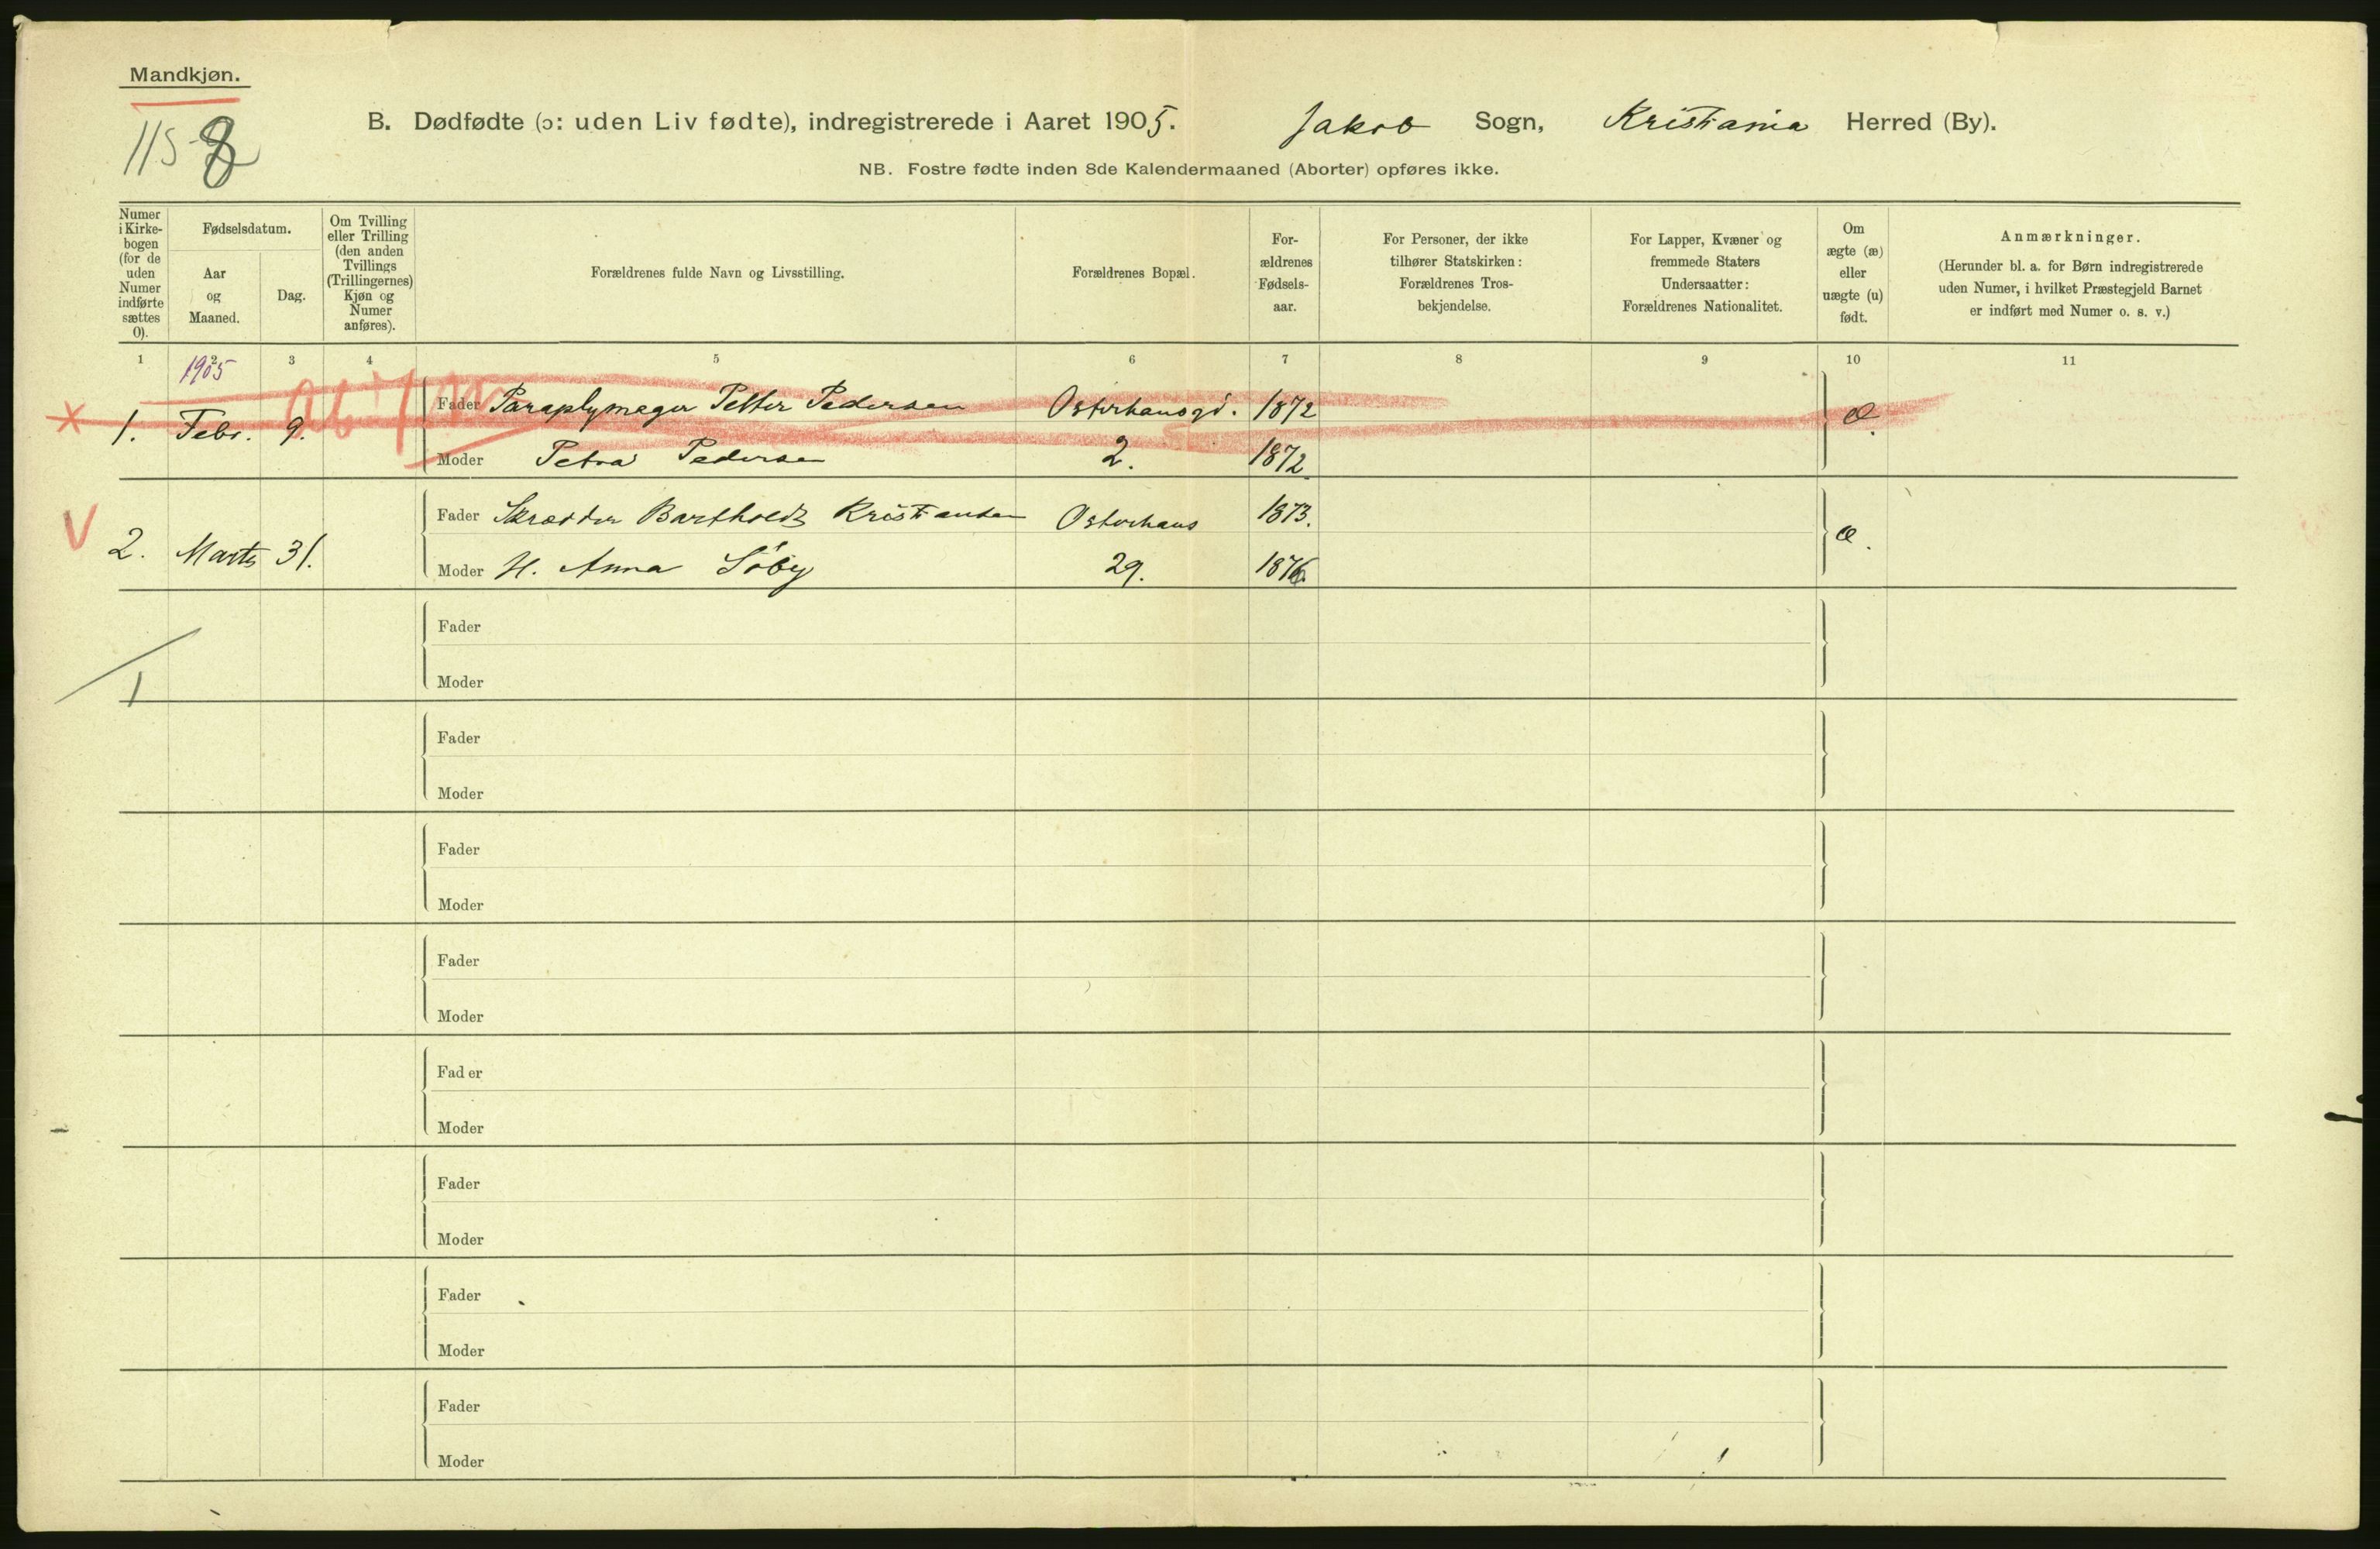 Mandkjøn.
115
8
B. Dødfødte (ɔ: uden Liv fødte), indregistrerede i Aaret 1905. Jakob Sogn, Kristiania Herred (By).
NB. Fostre fødte inden 8de Kalendermaaned (Aborter) opføres ikke.
Numer
i Kirke-
bogen
(for de
uden
Numer
indførte
sættes
0).
Fødselsdatum.
Aar
og
Maaned.
Dag.
Om Tvilling
eller Trilling
(den anden
Tvillings
(Trillingernes)
Kjøn og
Numer
anføres).
Forældrenes fulde Navn og Livsstilling.
Forældrenes Bopæl.
For-
ældrenes
Fødsels-
aar.
For Personer, der ikke
tilhører Statskirken:
Forældrenes Tros-
bekjendelse.
For Lapper, Kvæner og
fremmede Staters
Undersaatter:
Forældrenes Nationalitet.
Om
ægte (æ)
eller
uægte (u)
født.
Anmærkninger.
(Herunder bl. a. for Børn indregistrerede
uden Numer, i hvilket Præstegjeld Barnet
er indført med Numer o. s. v.)
1 2 3 4 5 6 7 8 9 10 11
1905
1. Febr. 9. Fader Paraplymager Petter Pedersen Osterhausgd. 1872 æ.
Moder Petra Pedersen 2. 1872
V
2. Marts 31. Fader Skrædder Barthold Kristiansen Osterhaus 1873. æ.
Moder H. Anna Söby 29. 1876
Fader
1 Moder
Fader
Moder
Fader
Moder
Fader
Moder
Fader
Moder
Fader
Moder
Fader
Moder
Fader
Moder